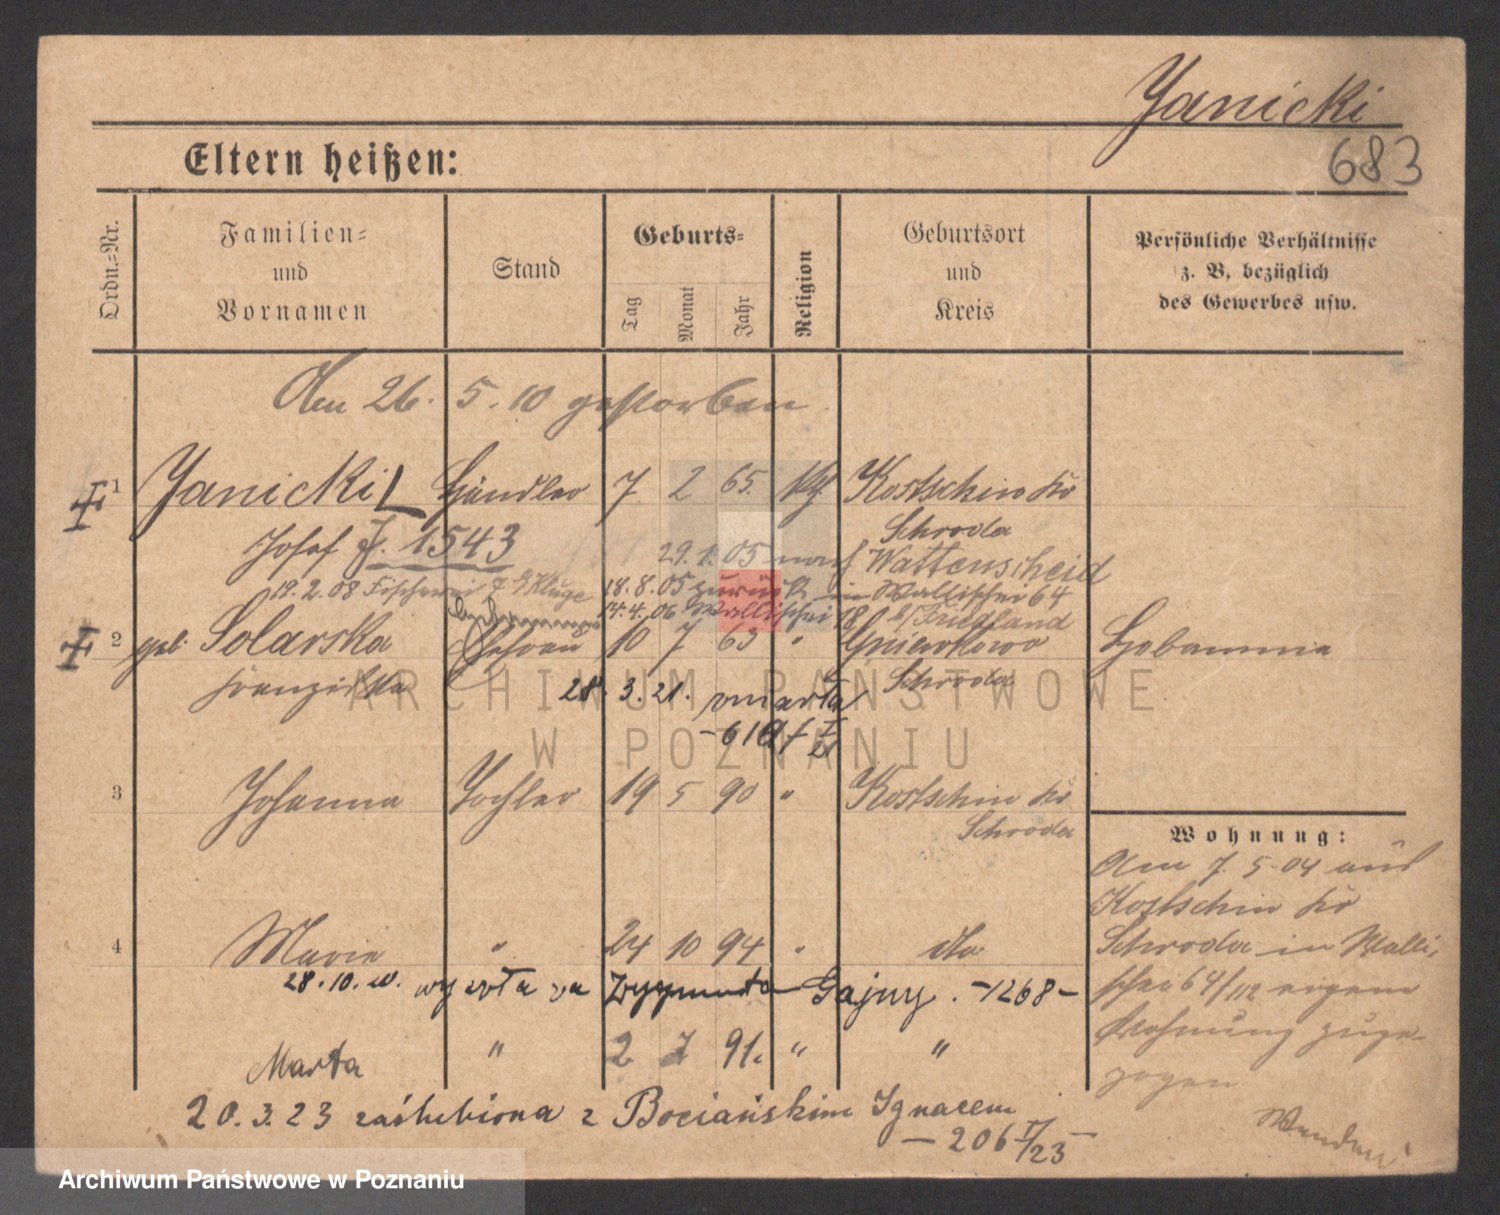 Janicki
683
Eltern heißen:
Ordn.-Nr.
Familien-
und
Vornamen
Stand
Geburts-
Tag
Monat
Jahr
Religion
Geburtsort
und
Kreis
Persönliche Verhältnisse
z. B. bezüglich
des Gewerbes usw.
Am 26. 5. 10 gestorben.
1 Janicki Händler 7 2 65. Kostschin Kr
Josef J. 1543 Schroda
29. 1. 05 nach Wattenscheid
19. 2. 08 Fischerei 7 b/Kluge 18. 8. 05 zurück in Wallischei 64
14. 4. 06 Wallischei 18 b/Friedland
2 geb. Solarska Ehefrau 10 7 63 " Gniewkowo Hebamme
Franziska Schroda
28. 3. 21. zmarła
-610/I 21
3 Johanna Tochter 19 5 90 " Kostschin Kr
Schroda
Wohnung:
Am 7. 5. 04 aus
Kostschin Kr
Schroda in Walli-
schei 64/ eigene
Wohnung zuge-
zogen
4 Marie " 24 10 94 " dto
28. 10. 20. wyszła za Zygmunta Gajny. -1268-
Marta " 2 7 91. " "
20. 3. 23 zaślubiona z Bociańskim Ignacem
- 206 I/23 -
Wenden!
ARCHIWUM PAŃSTWOWE
W POZNANIU
Archiwum Państwowe w Poznaniu